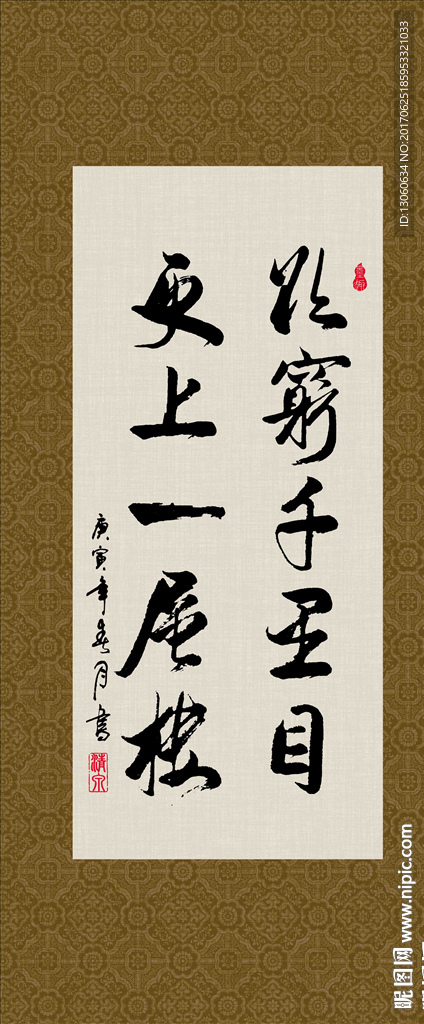 欲窮千里目
更上一层楼
庚寅年春月書
清泉
ID:13060634 NO:20170625185953321033
昵图网 www.nipic.com